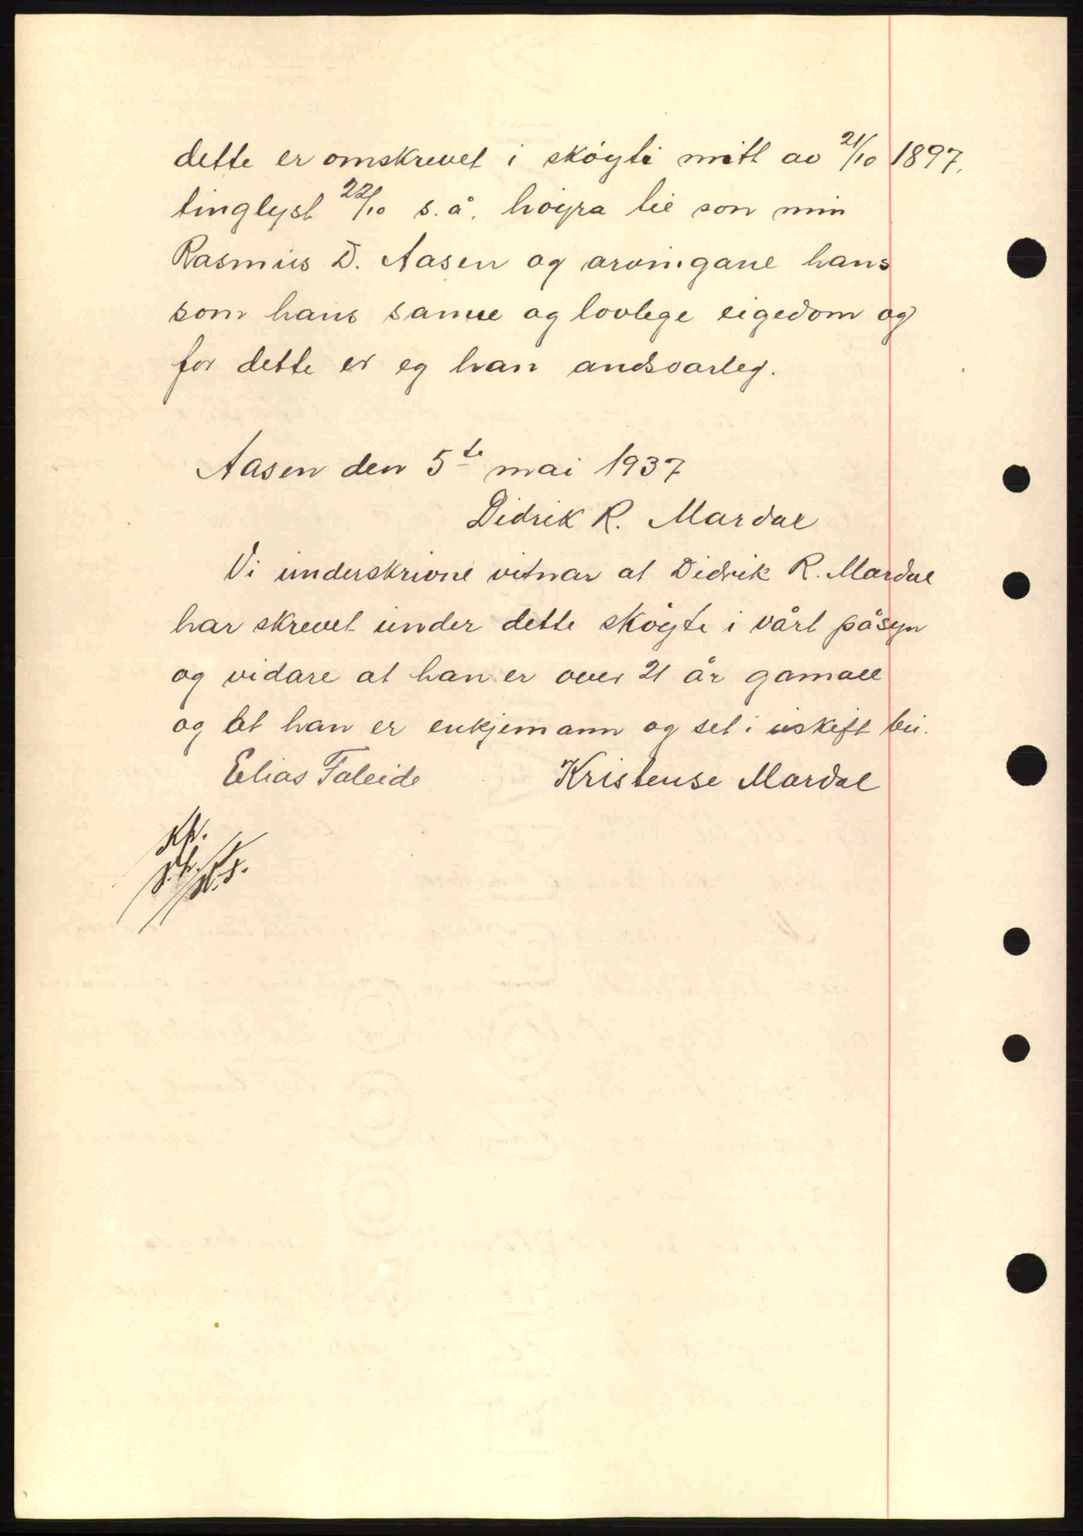 dette er omskrevet i skøyti mitt av 21/10 1897,
tinglyst 22/10 s.å. høyra til son min
Rasmus D. Aasen og arvingane hans
som hans sanne og lovlege eigedom og
for dette er eg han andsvarleg.
Aasen den 5te mai 1937
Didrik R. Mardal
Vi underskrivne vitnar at Didrik R. Mardal
har skrevet under dette skøyte i vårt påsyn
og vidare at han er over 21 år gamall
og at han er enkjemann og set i uskift bu.
Elias Faleide Kristense Mardal